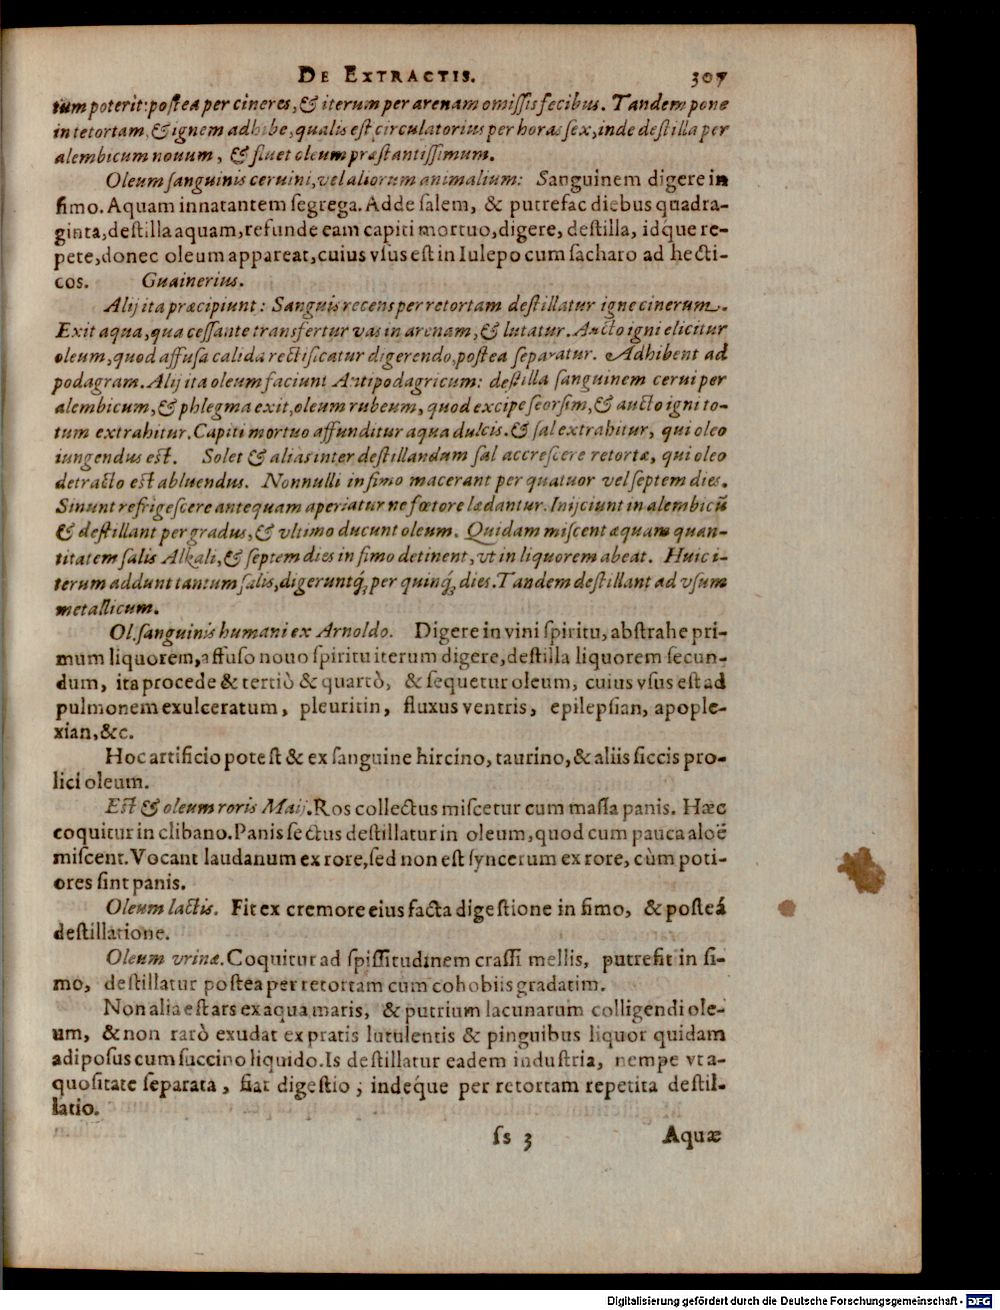 DE EXTRACTIS. 307
tum poterit: postea per cineres, & iterum per arenam omissis fecibus. Tandem pone
in retortam, & ignem adhibe, qualis est circulatorius per horas sex, inde destilla per
alembicum nouum, & fluet oleum præstantissimum.
Oleum sanguinis ceruini, vel aliorum animalium: Sanguinem digere in
fimo. Aquam innatantem segrega. Adde salem, & putrefac diebus quadra-
ginta, destilla aquam, refunde eam capiti mortuo, digere, destilla, idq́ue re-
pete, donec oleum appareat, cuius vsus est in Iulepo cum sacharo ad hecti-
cos. Guainerius.
Alij ita præcipiunt: Sanguis recens per retortam destillatur igne cinerum.
Exit aqua, qua cessante transfertur vas in arenam, & lutatur. Aucto igni elicitur
oleum, quod affusa calida rectificatur digerendo, postea separatur. Adhibent ad
podagram. Alij ita oleum faciunt Antipodagricum: destilla sanguinem cerui per
alembicum, & phlegma exit, oleum rubeum, quod excipe seorsim, & aucto igni to-
tum extrahitur. Capiti mortuo affunditur aqua dulcis. & sal extrahitur, qui oleo
iungendus est. Solet & alias inter destillandum sal accrescere retortæ, qui oleo
detracto est abluendus. Nonnulli in fimo macerant per quatuor vel septem dies.
Sinunt refrigescere antequam aperiatur ne fœtore lædantur. Inijciunt in alembicū
& destillant per gradus, & vltimo ducunt oleum. Quidam miscent æquam quan-
titatem salis Alkali, & septem dies in fimo detinent, vt in liquorem abeat. Huic i-
terum addunt tantum salis, digeruntq́; per quinq́; dies. Tandem destillant ad vsum
metallicum.
Ol. sanguinis humani ex Arnoldo. Digere in vini spiritu, abstrahe pri-
mum liquorem, affuso nouo spiritu iterum digere, destilla liquorem secun-
dum, ita procede & tertiò & quartò, & sequetur oleum, cuius vsus est ad
pulmonem exulceratum, pleuritin, fluxus ventris, epilepsian, apople-
xian, &c.
Hoc artificio potest & ex sanguine hircino, taurino, & aliis siccis pro-
lici oleum.
Est & oleum roris Maij. Ros collectus miscetur cum massa panis. Hæc
coquitur in clibano. Panis sectus destillatur in oleum, quod cum pauca aloë
miscent. Vocant laudanum ex rore, sed non est syncerum ex rore, cùm poti-
ores sint panis.
Oleum lactis. Fit ex cremore eius facta digestione in fimo, & posteá
destillatione.
Oleum vrinæ. Coquitur ad spissitudinem crassi mellis, putrefit in fi-
mo, destillatur postea per retortam cum cohobiis gradatim.
Non alia est ars ex aqua maris, & putrium lacunarum colligendi ole-
um, & non rarò exudat ex pratis lutulentis & pinguibus liquor quidam
adiposus cum succino liquido. Is destillatur eadem industria, nempe vt a-
quositate separata, fiat digestio, indeq́ue per retortam repetita destil-
latio.
ss 3 Aquæ
Digitalisierung gefördert durch die Deutsche Forschungsgemeinschaft - DFG